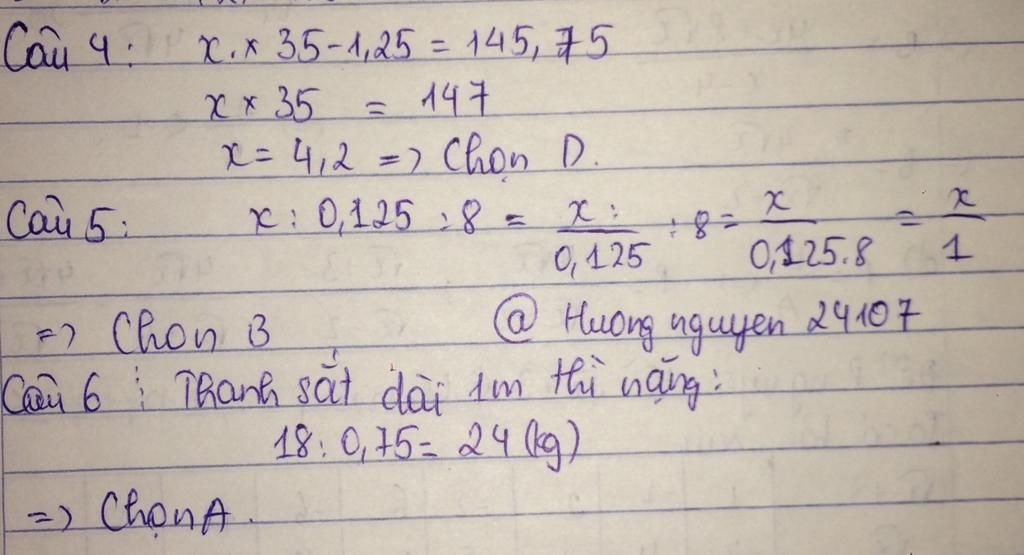 Câu 4: x. × 35 - 1,25 = 145,75
x × 35 = 147
x = 4,2 => Chọn D.
Câu 5: x : 0,125 : 8 = x : / 0,125 : 8 = x / 0,125.8 = x / 1
=> Chọn B @ Huong nguyen 24107
Câu 6 : Thanh sắt dài 1m thì nặng:
18 : 0,75 = 24 (kg)
=> Chọn A.